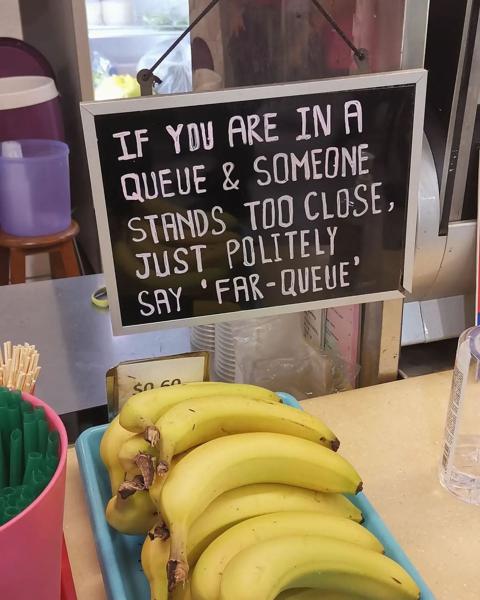 IF YOU ARE IN A
QUEUE & SOMEONE
STANDS TOO CLOSE,
JUST POLITELY
SAY 'FAR-QUEUE'
$0.60